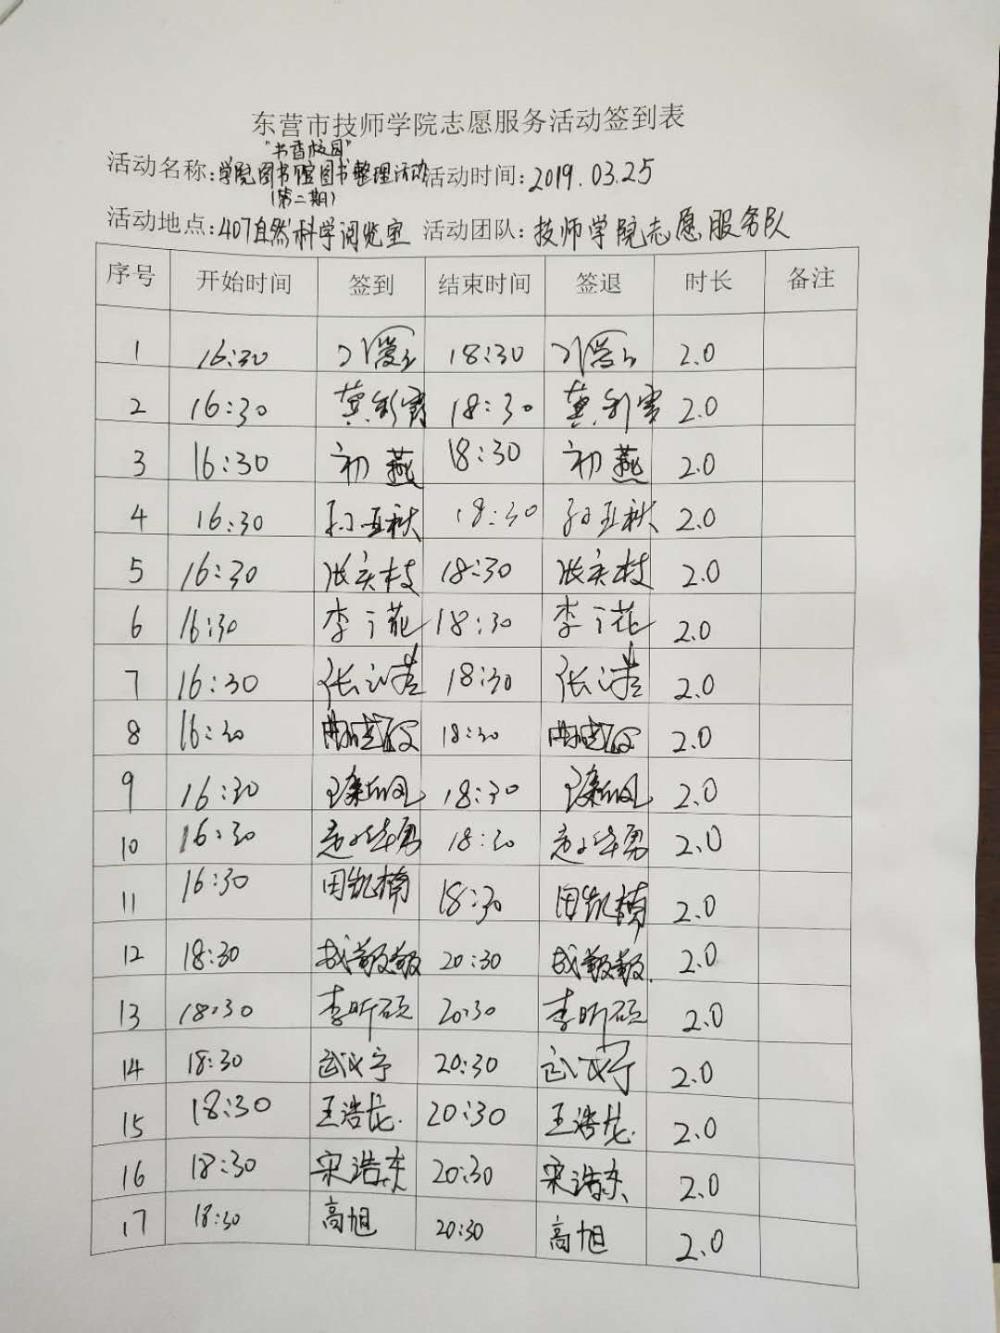 东营市技师学院志愿服务活动签到表
"书香校园"
活动名称:学院图书馆图书整理活动 活动时间:2019.03.25
(第二期)
活动地点:407自然科学阅览室 活动团队:技师学院志愿服务队
序号 开始时间 签到 结束时间 签退 时长 备注
1 16:30 18:30 2.0
2 16:30 18:30 2.0
3 16:30 初燕 18:30 初燕 2.0
4 16:30 孙亚秋 18:30 孙亚秋 2.0
5 16:30 张庆枝 18:30 张庆枝 2.0
6 16:30 李 花 18:30 李 花 2.0
7 16:30 张 18:30 张 2.0
8 16:30 18:30 2.0
9 16:30 18:30 2.0
10 16:30 18:30 2.0
11 16:30 田凯楠 18:30 田凯楠 2.0
12 18:30 20:30 2.0
13 18:30 李昕硕 20:30 李昕硕 2.0
14 18:30 武汉宁 20:30 武汉宁 2.0
15 18:30 王浩龙. 20:30 王浩龙. 2.0
16 18:30 宋浩东 20:30 宋浩东 2.0
17 18:30 高旭 20:30 高旭 2.0